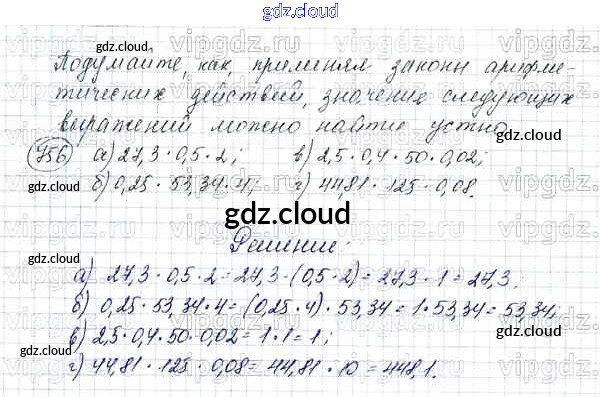 gdz.cloud
Подумайте, как, применяя законы арифме-
тических действий, значение следующих
выражений можно найти устно
756 а) 27,3 · 0,5 · 2; в) 2,5 · 0,4 · 50 · 0,02;
б) 0,25 · 53,34 · 4; г) 44,81 · 125 · 0,08.
gdz.cloud
Решение:
а) 27,3 · 0,5 · 2 = 27,3 · (0,5 · 2) = 27,3 · 1 = 27,3;
б) 0,25 · 53,34 · 4 = (0,25 · 4) · 53,34 = 1 · 53,34 = 53,34;
в) 2,5 · 0,4 · 50 · 0,02 = 1 · 1 = 1;
г) 44,81 · 125 · 0,08 = 44,81 · 10 = 448,1.